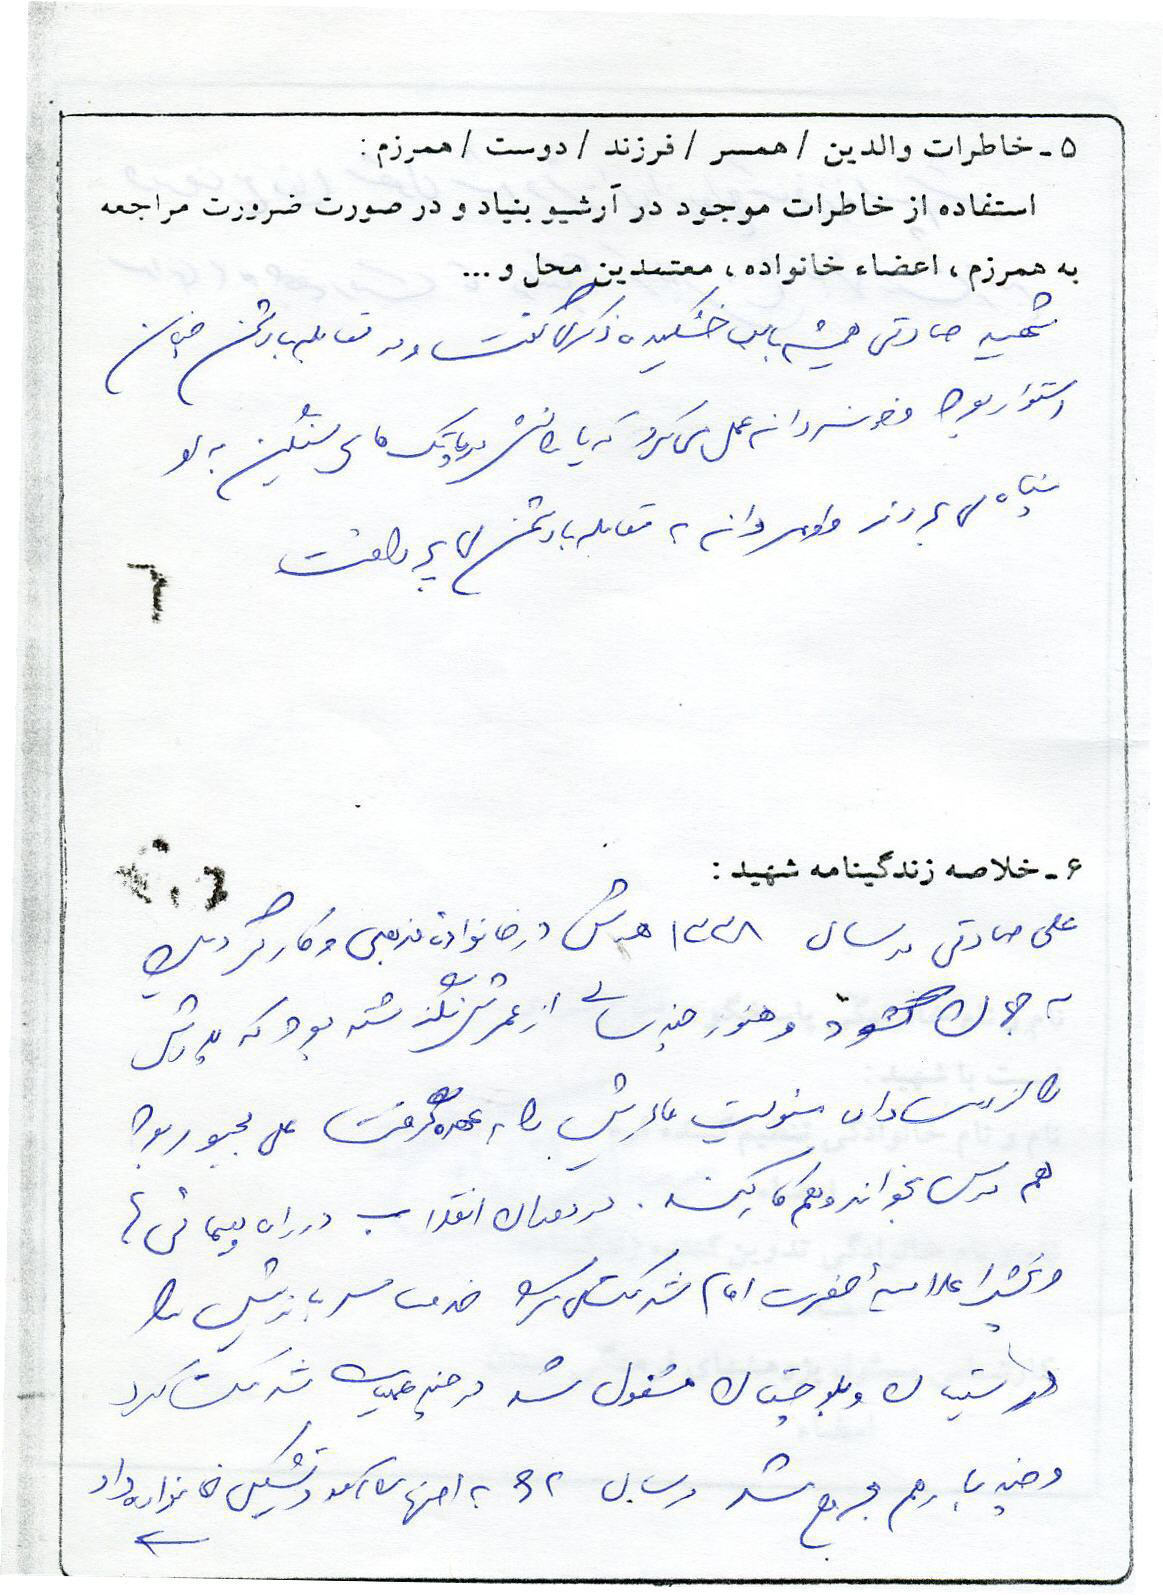 ۵ ـ خاطرات والدین / همسر / فرزند / دوست / همرزم :
استفاده از خاطرات موجود در آرشیو بنیاد و در صورت ضرورت مراجعه
به همرزم ، اعضاء خانواده ، معتمدین محل و ...
شهید صادقی همیشه با لب خشکیده ذکر می گفت و در مقابله با دشمن چنان
استوار بود و خونسردانه عمل می کرد که پاتک های سنگین به او
پناه می بردند و او مردانه به مقابله با دشمن می پرداخت
۶ ـ خلاصه زندگینامه شهید :
علی صادقی در سال ۱۳۳۸ هـ ش در خانواده مذهبی و کارگر دیده
به جهان گشود و هنوز چند سالی از عمرش نگذشته بود که پدرش
را از دست داد مسئولیت مادرش را به عهده گرفت علی مجبور بود
هم درس بخواند و هم کار بکند . در دوران انقلاب در راه پیمائی ها
و پخش اعلامیه حضرت امام شرکت می کرد خدمت سربازیش را
در سیستان و بلوچستان مشغول شد در چند عملیات شرکت کرد
و چند بار هم مجروح شد در سال ۶۲ به اصفهان آمد و تشکیل خانواده داد